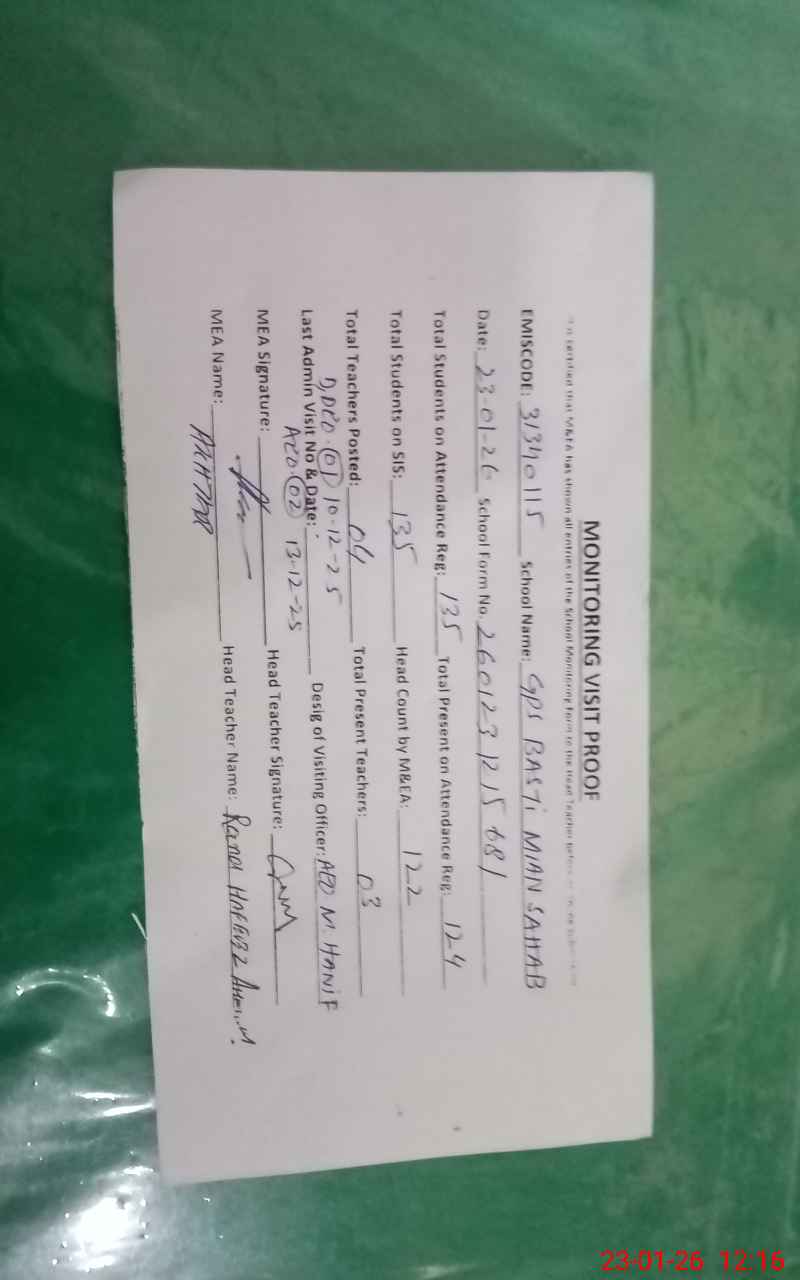 MONITORING VISIT PROOF
certified that M&EA has shown all entries of the School Monitoring Form to the Head Teacher before
EMISCODE: 31340115 School Name: GPS BASTi MIAN SAHAB
Date: 23-01-26 School Form No. 260123 1215 681
Total Students on Attendance Reg: 135 Total Present on Attendance Reg: 124
Total Students on SIS: 135 Head Count by M&EA: 122
Total Teachers Posted: 04 Total Present Teachers: 03
D,DEO. (01) 10-12-25
Last Admin Visit No & Date: Desig of Visiting Officer: AEO M. HANiF
AEO. (02) 13-12-25
MEA Signature: Head Teacher Signature:
MEA Name: AKHTAR Head Teacher Name: Rana
23-01-26 12:16